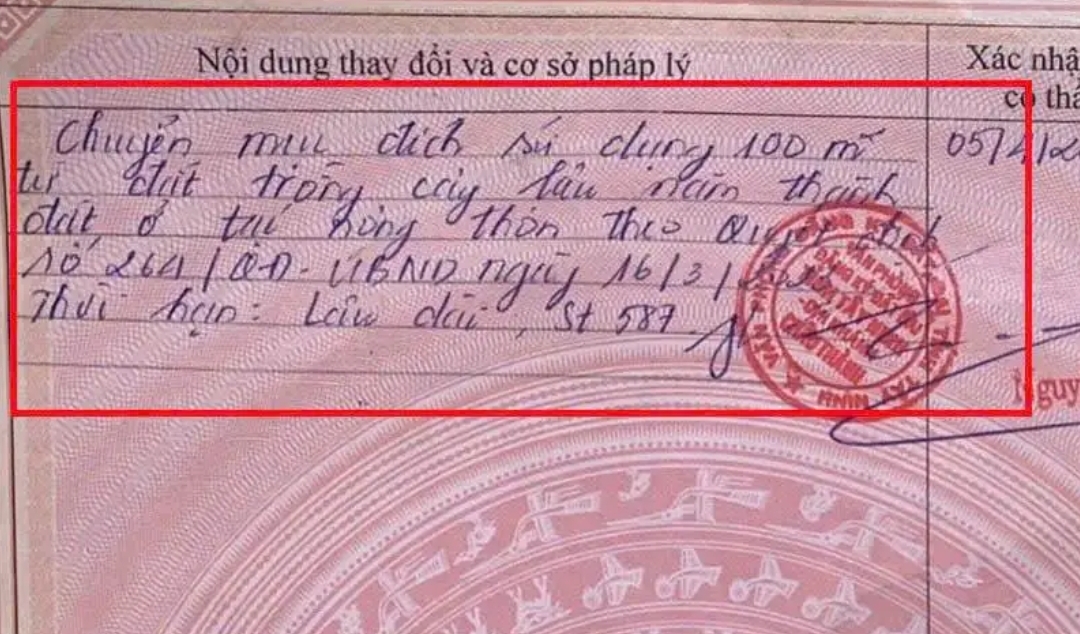 Nội dung thay đổi và cơ sở pháp lý
Xác nhậ
có thẩ
Chuyển mục đích sử dụng 100 m²
từ đất trồng cây lâu năm thành
đất ở tại nông thôn theo Quyết định
số 264/QĐ-UBND ngày 16/3/
Thời hạn: Lâu dài, St 587
05/4/2
TỈNH TÂY NINH
Nguy